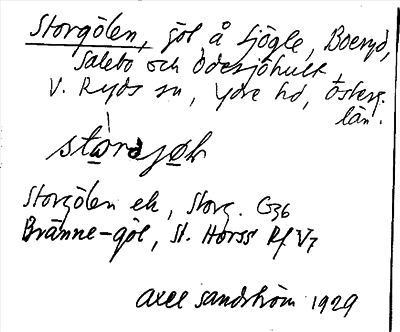 Storgölen, göl å Sjögle, Boeryd,
Salebo och Ödesjöhult,
V. Ryds sn, Ydre hd, Österg.
län.
Storgölen ek, Storg. G36
Bränne-göl, St. Horss Rf V7
Axel Sandström 1929